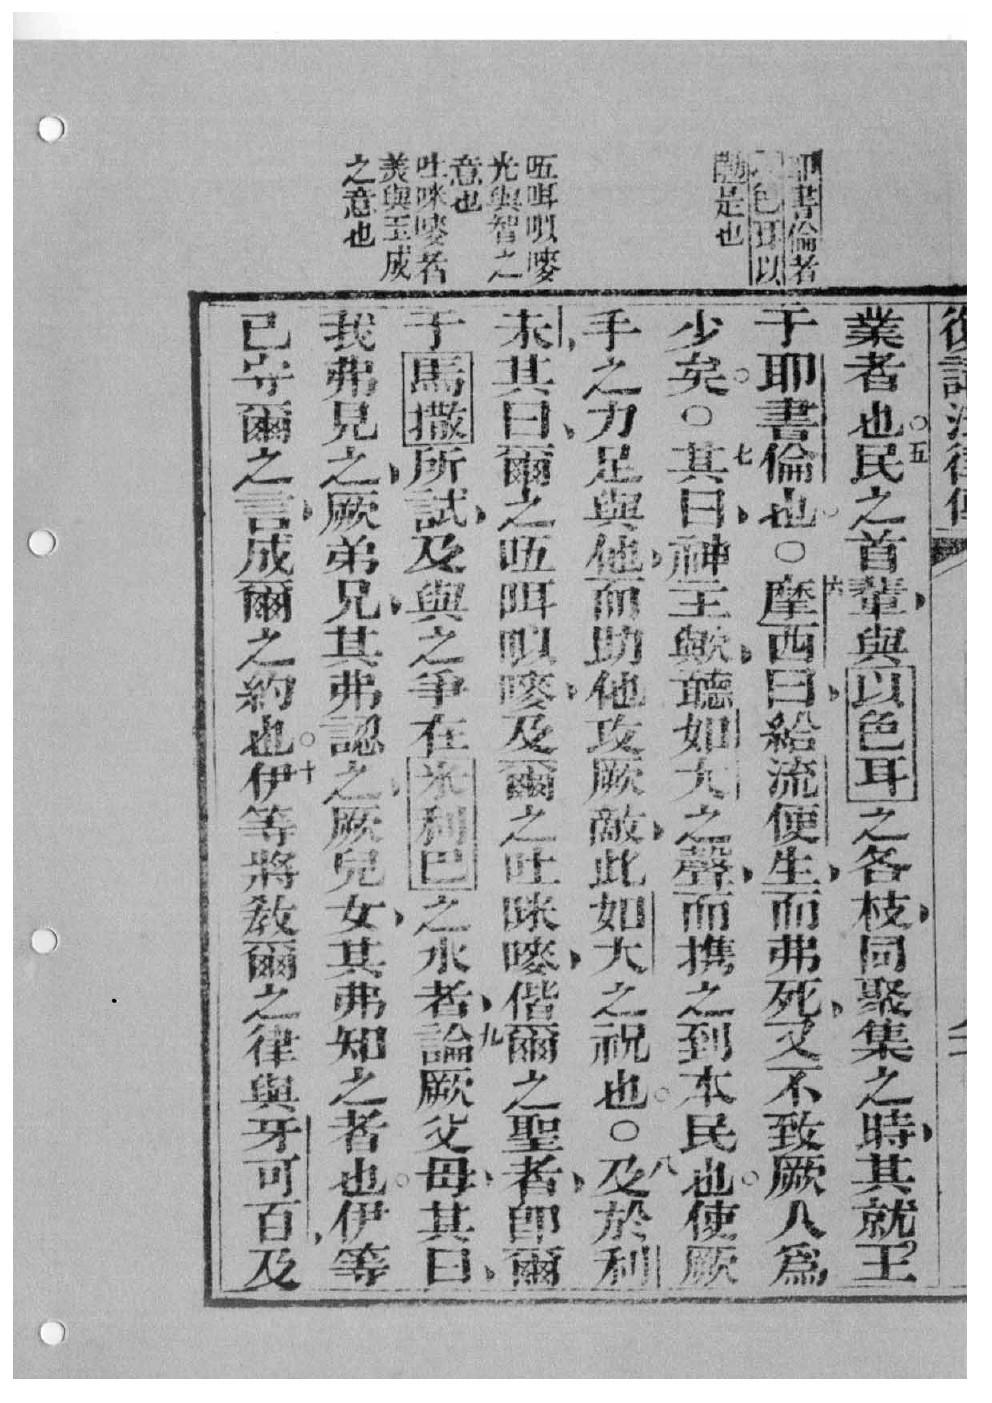 耶書倫者
以色耳以
勒是也
㕶咡㕥嘜
光與智之
意也
吐咪嘜者
美與玉成
之意也
復講法律傳
業者也○五民之首輩與以色耳之各枝同聚集之時其就王
于耶書倫也○六摩西曰給流使生而弗死又不致厥人為
少矣○七其曰神主歟聽如大之聲而携之到本民也使厥
手之力足與他而助他攻厥敵此如大之祝也○八及於利
未其曰爾之㕶咡㕥嘜及爾之吐咪嘜偕爾之聖者即爾
于馬撒所試及與之爭在米利巴之水者九論厥父母其曰
我弗見之厥弟兄其弗認之厥兒女其弗知之者也伊等
已守爾之言成爾之約也○十伊等將教爾之律與牙可百及